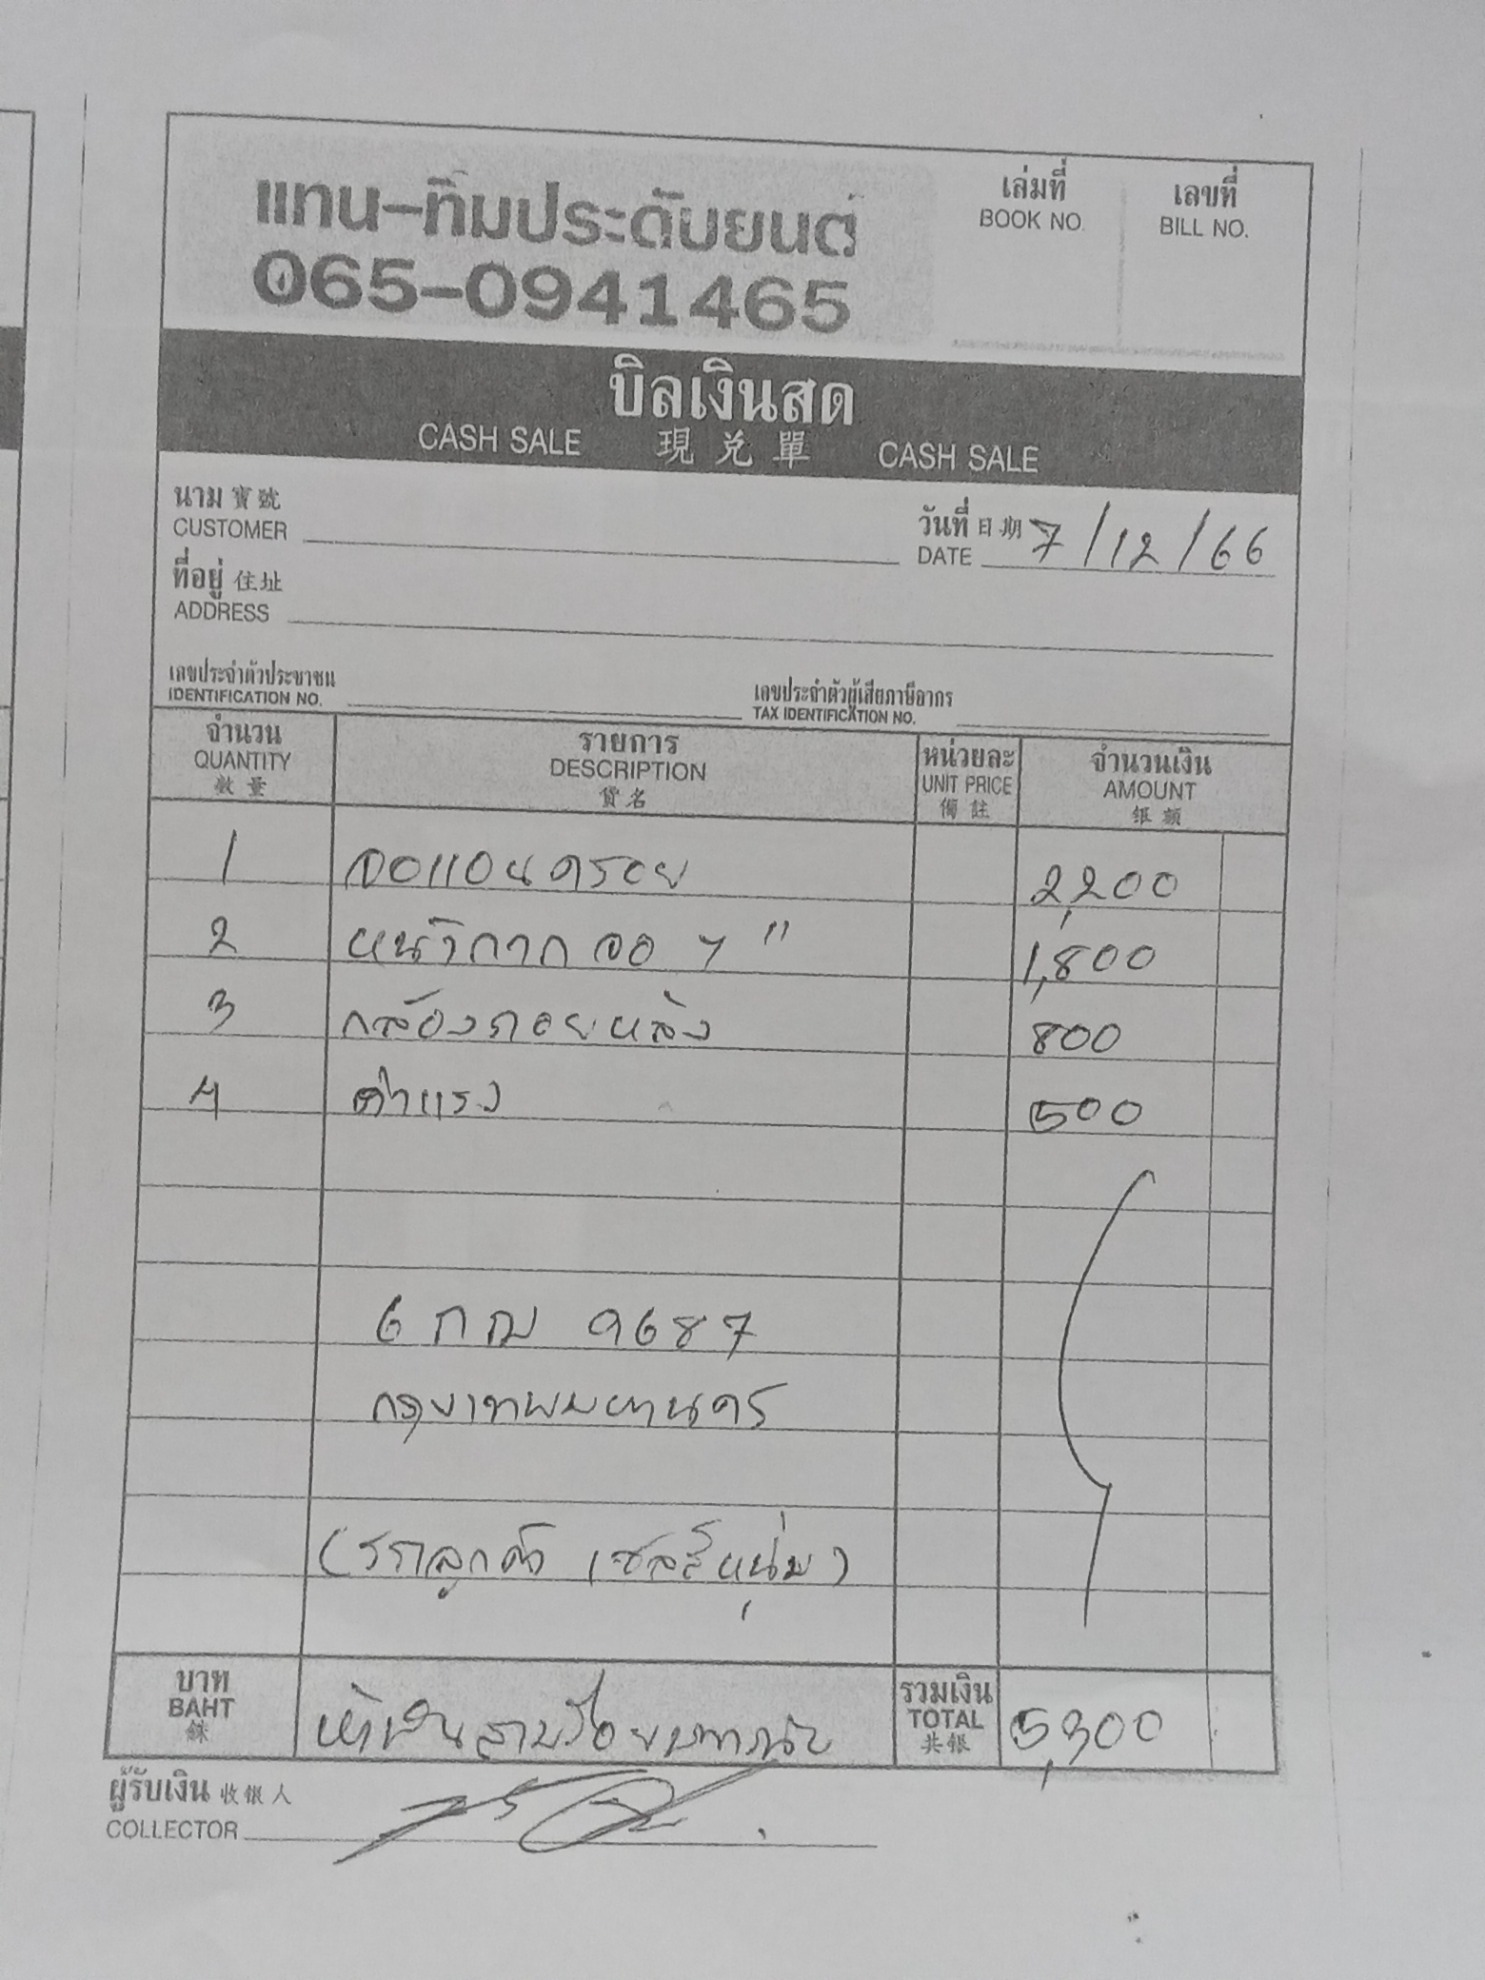 แทน-ทิมประดับยนต์
065-0941465
เล่มที่
BOOK NO.
เลขที่
BILL NO.
บิลเงินสด
CASH SALE 現兌單 CASH SALE
นาม 寶號
CUSTOMER
วันที่ 日期 7/12/66
DATE
ที่อยู่ 住址
ADDRESS
เลขประจำตัวประชาชน
IDENTIFICATION NO.
เลขประจำตัวผู้เสียภาษีอากร
TAX IDENTIFICATION NO.
จำนวน รายการ หน่วยละ จำนวนเงิน
QUANTITY DESCRIPTION UNIT PRICE AMOUNT
數量 貨名 備註 銀額
1 จอแอนดรอย 2,200
2 หน้ากากจอ 7" 1,800
3 กล้องถอยหลัง 800
4 ค่าแรง 500
6 กฌ 9687
กรุงเทพมหานคร
(รถลูกค้า เซลล์หนุ่ม)
บาท
BAHT
銖
ห้าพันสามร้อยบาทถ้วน
รวมเงิน
TOTAL
共銀
5,300
ผู้รับเงิน 收銀人
COLLECTOR